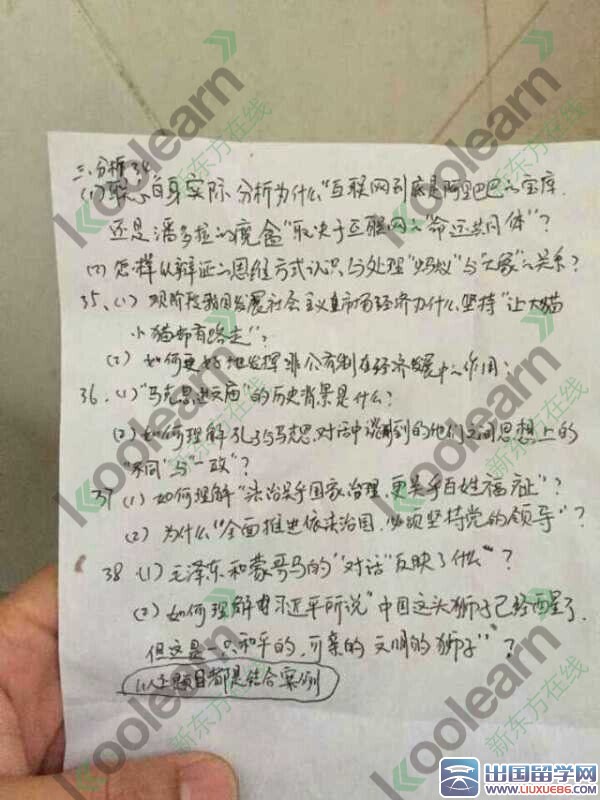 三、分析34
(1)联系自身实际 分析为什么"互联网到底是阿里巴巴的宝库
还是潘多拉的魔盒"取决于互联网的"命运共同体"?
(2)怎样从辩证的思维方式认识与处理"蚂蚁"与"大象"的关系?
35、(1)现阶段我国发展社会主义市场经济为什么坚持"让大猫
小猫都有路走"?
(2)如何更好地发挥非公有制在经济发展中的作用?
36.(1)"马克思进文庙"的历史背景是什么?
(2)如何理解孔子与马克思对话中谈到的他们之间思想上的
"不同"与"一致"?
37(1)如何理解"法治关乎国家治理,更关乎百姓福祉"?
(2)为什么"全面推进依法治国,必须坚持党的领导"?
38(1)毛泽东和蒙哥马的"对话"反映了什么?
(2)如何理解习近平所说"中国这头狮子已经醒了,
但这是一只和平的,可亲的 文明的狮子"?
以上题目都是结合案例
koolearn
新东方在线
koolearn
新东方在线
koolearn
新东方在线
koolearn
新东方在线
koolearn
新东方在线
出国留学网
www.liuxue86.com